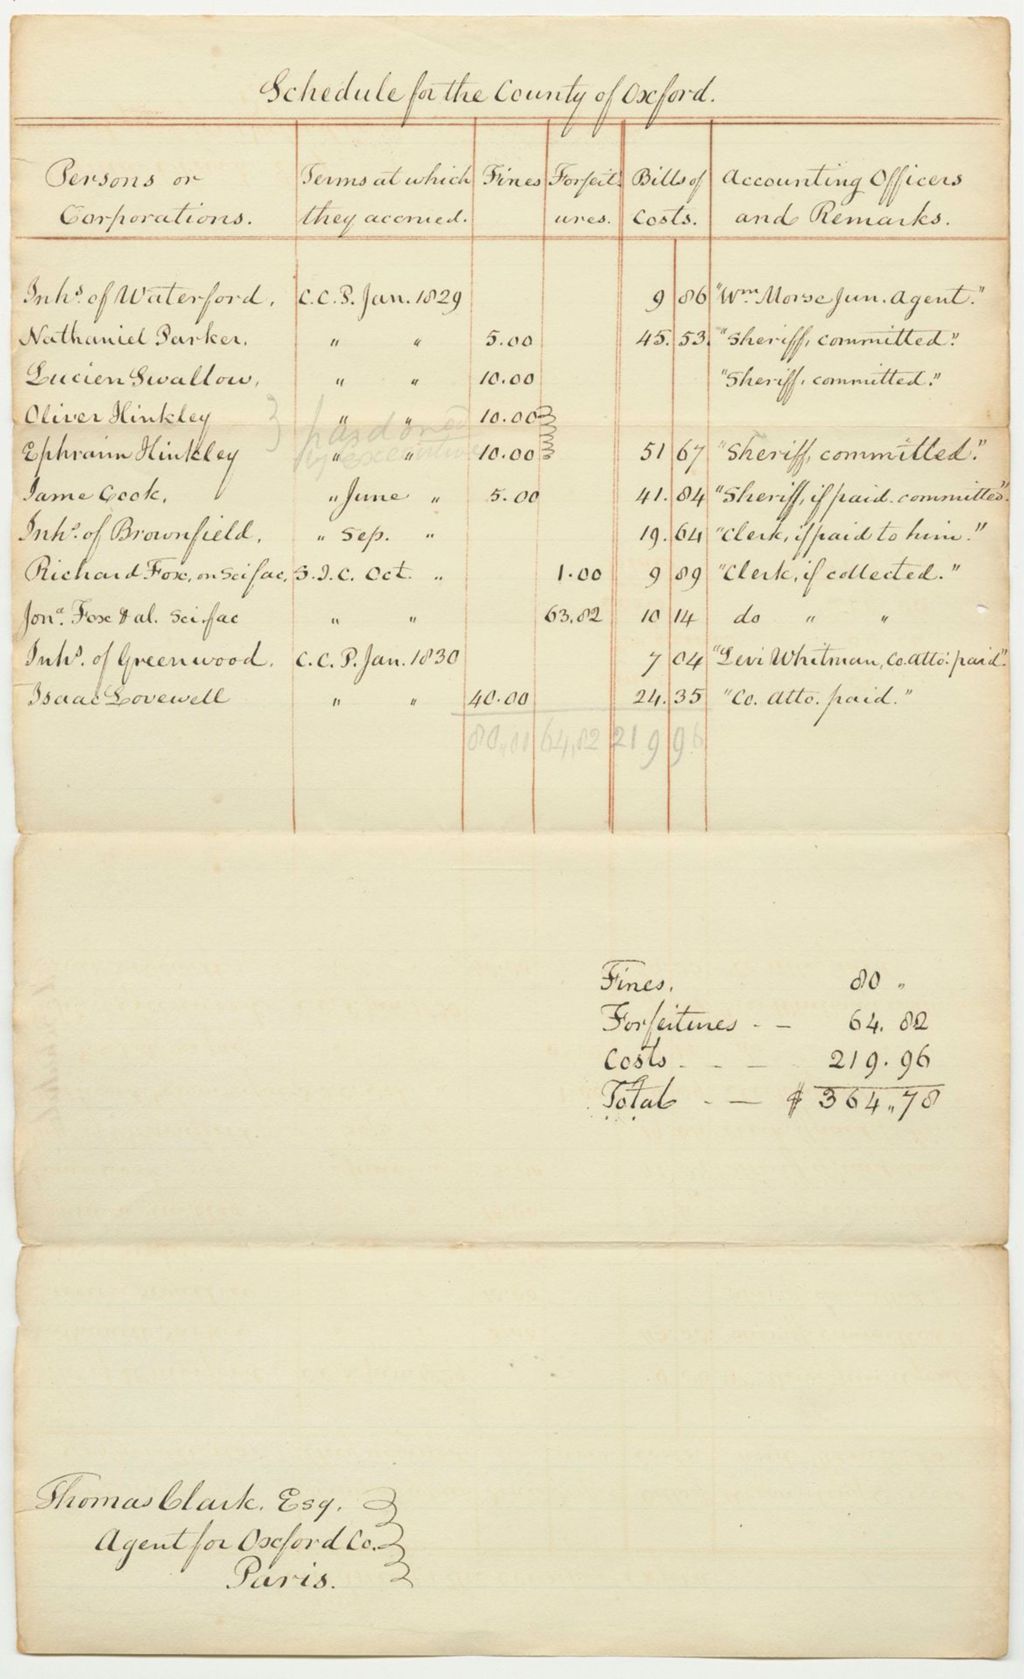 Schedule for the County of Oxford.
Persons or Corporations. Terms at which they accrued. Fines Forfeitures. Bills of Costs. Accounting Officers and Remarks.
Inhs. of Waterford, C.C.P. Jan. 1829 9 86 "Wm Morse Jun. Agent."
Nathaniel Parker. " " 5.00 45. 53. "Sheriff, committed."
Lucien Swallow, " " 10.00 "Sheriff, committed."
Oliver Hinkley " " 10.00
pardoned
Ephraim Hinkley " " 10.00 51 67 "Sheriff, committed."
by executive
Jame Cook, " June " 5.00 41. 84 "Sheriff, if paid. committed".
Inhs. of Brownfield, " Sep. " 19. 64 "Clerk, if paid to him."
Richard Fox, on Sci fac, S.J.C. Oct. " 1.00 9 89 "Clerk, if collected."
Jona. Fox & al. Sci. fac " " 63.82 10 14 do " "
Inhs. of Greenwood. C.C.P. Jan. 1830 7 04 "Levi Whitman, Co. Atto: paid".
Isaac Lovewell " " 40.00 24. 35 "Co. Atto. paid."
80.00 64.82 219 96
Fines. 80 "
Forfeitures - — 64. 82
Costs - - — 219. 96
Total - — $ 364.78
Thomas Clark. Esq.
Agent for Oxford Co.
Paris.